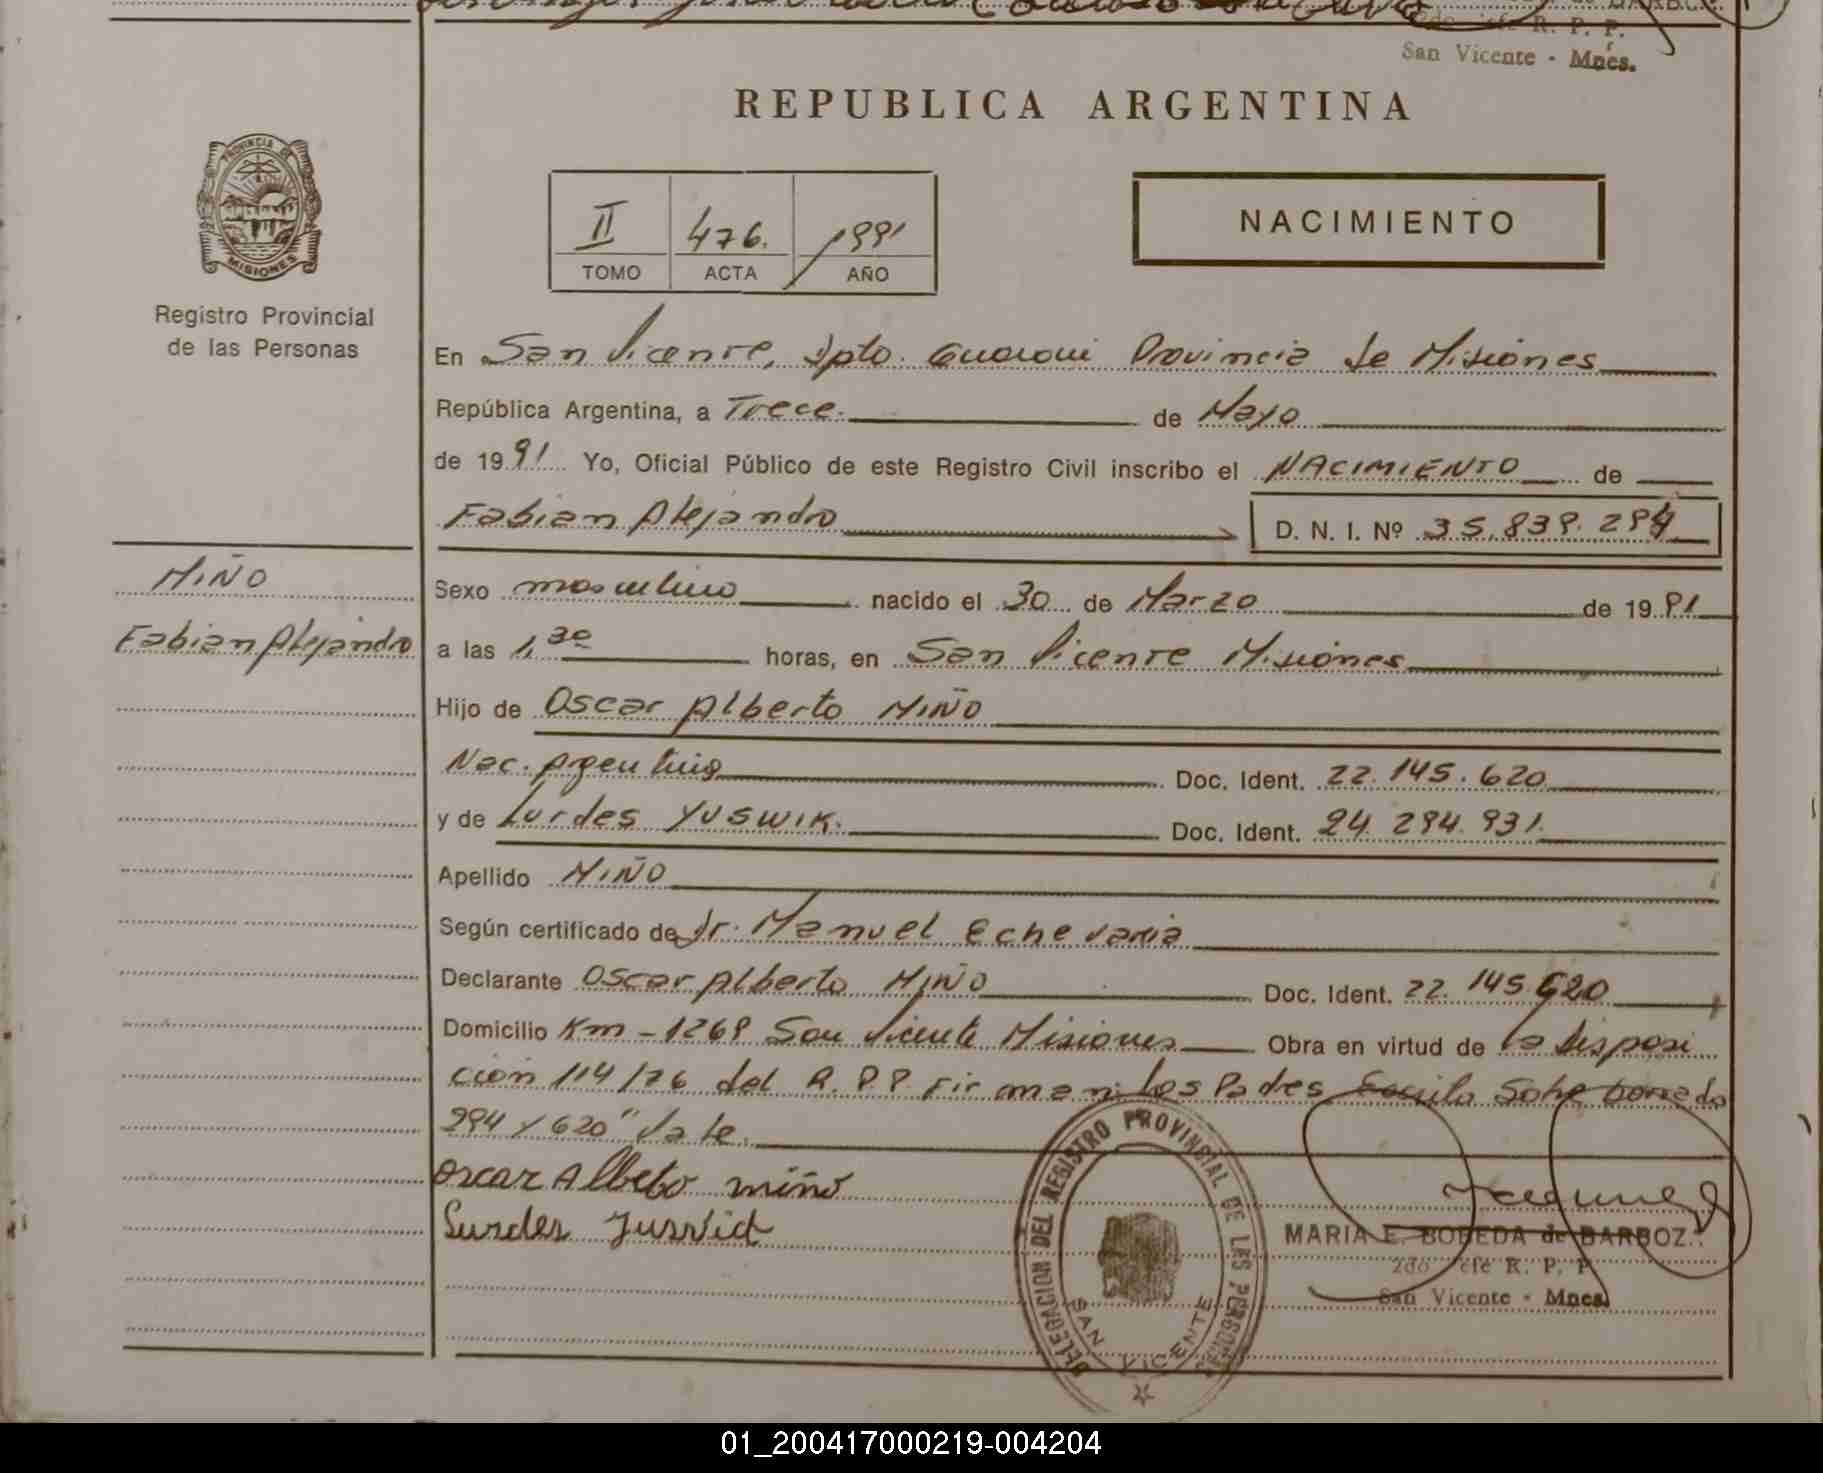 2do Jefe R. P. P.
San Vicente - Mnes.
REPUBLICA ARGENTINA
PROVINCIA DE
MISIONES
II 476. 1991
TOMO ACTA AÑO
NACIMIENTO
Registro Provincial
de las Personas
En San Vicente, Dpto. Guarani Provincia de Misiones
República Argentina, a Trece. de Mayo
de 1991 Yo, Oficial Público de este Registro Civil inscribo el NACIMIENTO de
Fabian Alejandro D. N. I. Nº 35.839.294
MIÑO
Fabian Alejandro
Sexo masculino nacido el 30 de Marzo de 1991
a las 1,30 horas, en San Vicente Misiones
Hijo de Oscar Alberto MIÑO
Nac. Argentina Doc. Ident. 22.145.620
y de Lurdes YUSWIK. Doc. Ident. 24.294.931.
Apellido MIÑO
Según certificado de Dr. Manuel Echevaria
Declarante Oscar Alberto MIÑO Doc. Ident. 22.145.620
Domicilio Km - 1269 San Vicente Misiones Obra en virtud de la disposi
ción 114/76 del R.P.P Firman: Los Padres Escrito Sobre borrado
294 y 620" Vale.
oscar Alberto miño
Lurdes
DELEGACION DEL REGISTRO PROVINCIAL DE LAS PERSONAS
SAN VICENTE
MARIA E. BOBEDA de BARBOZ..
2do Jefe R. P. P
San Vicente - Mnes.
01_200417000219-004204